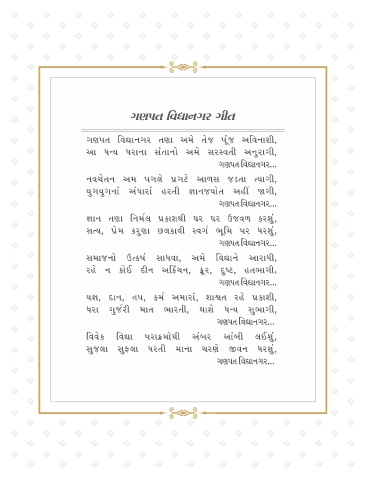 ગણપત વિદ્યાનગર ગીત
ગણપત વિદ્યાનગર તણા અમે તેજ પૂંજ અવિનાશી,
આ ધન્ય ધરાના સંતાનો અમે સરસ્વતી અનુરાગી,
ગણપત વિદ્યાનગર...
નવચેતન અમ પગલે પ્રગટે આળસ જડતા ત્યાગી,
યુગયુગનાં અંધારાં હરતી જ્ઞાનજ્યોત અહીં જાગી,
ગણપત વિદ્યાનગર...
જ્ઞાન તણા નિર્મલ પ્રકાશથી ઘર ઘર ઉજવળ કરશું,
સત્ય, પ્રેમ કરુણા છલકાવી સ્વર્ગ ભૂમિ પર ધરશું,
ગણપત વિદ્યાનગર...
સમાજનો ઉત્કર્ષ સાધવા, અમે વિદ્યાને આરાધી,
રહે ન કોઈ દીન અકિંચન, ક્રૂર, દુષ્ટ, હતભાગી,
ગણપત વિદ્યાનગર...
યજ્ઞ, દાન, તપ, કર્મ અમારાં, શાશ્વત રહે પ્રકાશી,
ધરા ગુર્જરી માત ભારતી, થાશે ધન્ય સુભાગી,
ગણપત વિદ્યાનગર...
વિવેક વિદ્યા પરાક્રમોથી અંબર આંબી લઈશું,
સુજલા સુફલા ધરતી માના ચરણે જીવન ધરશું,
ગણપત વિદ્યાનગર...